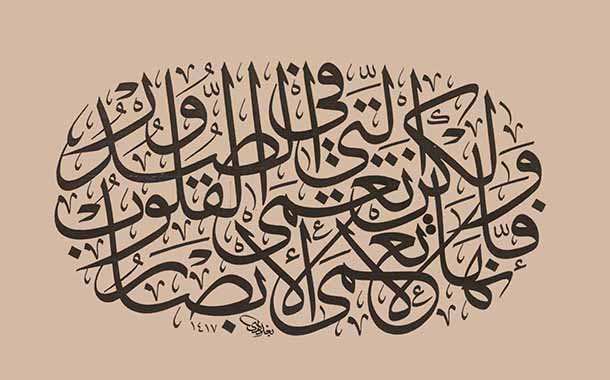 فَإِنَّهَا لَا تَعْمَى الْأَبْصَارُ
وَلَكِنْ تَعْمَى الْقُلُوبُ
الَّتِي فِي الصُّدُورِ
١٤١٧